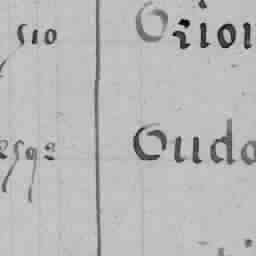 510 Orion
2592 Ouda